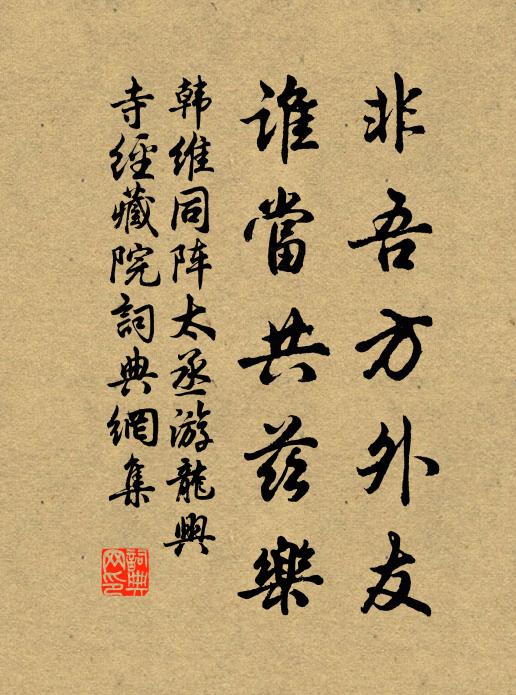 非吾方外友
誰當共茲樂
韩維同阵太丞游龍興
寺經藏院詞典網集
詞典
网印